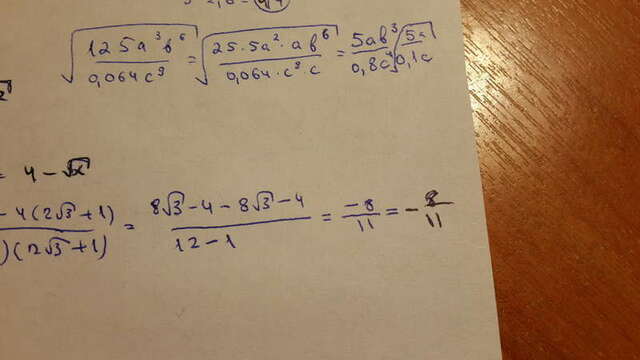 = 4 - √x
√(125a³b⁶ / 0,064c⁹) = √(25·5a²·ab⁶ / 0,064·c⁸·c) = 5ab³√5a / 0,8c⁴√0,1c
-4(2√3+1) / )(2√3+1) = 8√3-4-8√3-4 / 12-1 = -8/11 = -8/11